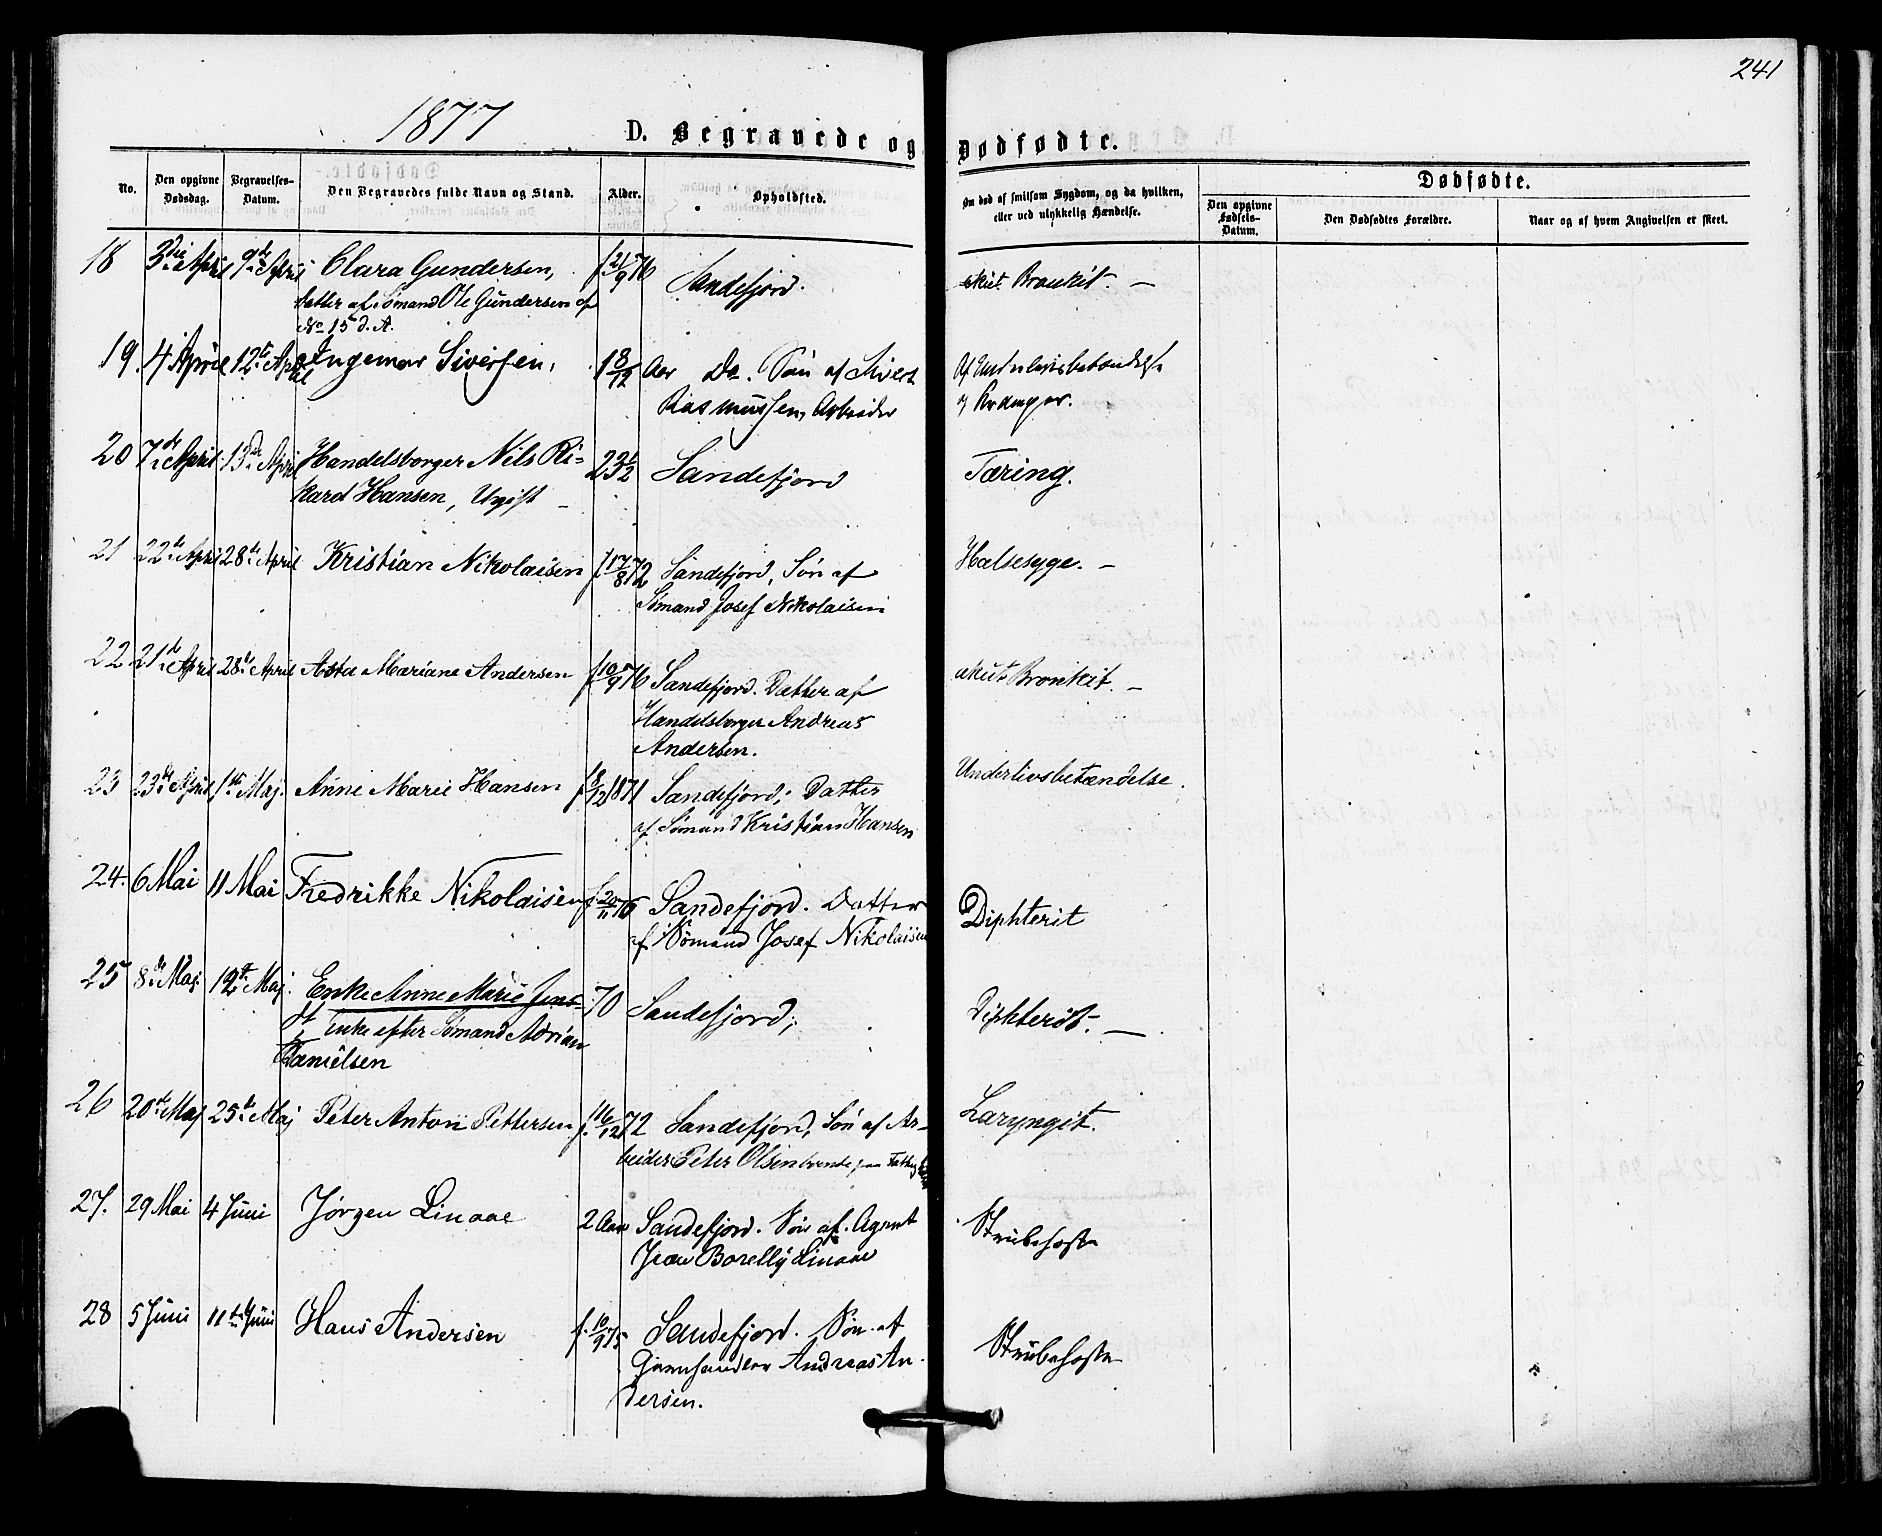 241
1877
D. Begravede og Dødfødte.
No.
Den opgivne Dødsdag.
Begravelses-Datum.
Den Begravedes fulde Navn og Stand.
Alder.
Opholdsted.
Om død af smitsom Sygdom, og da hvilken, eller ved ulykkelig Hændelse.
Dødfødte.
Den opgivne Fødsels-Datum.
Den Dødfødtes Forældre.
Naar og af hvem Angivelsen er skeet.
18 3die April 9de April Clara Gundersen, f 21/9 76 Sandefjord. akut Bronkit. —
Datter af Sømand Ole Gundersen af
No 15 d. A.
19. 4 April 12te April Ingemar Siversen, 1 8/12 Aar Do. Søn af Sivert Af Underlivsbetændelse
Rasmussen, Arbeider og Kramper.
20 7de April 13de April Handelsborger Nils Ri- 23 1/2 Sandefjord Tæring.
kard Hansen, Ugift —
21 22de April 28de April Kristian Nikolaisen f. 17/8 72 Sandefjord, Søn af Halsesyge. —
Sømand Josef Nikolaisen
22 21de April 28de April Asta Mariane Andersen f 10/9 76 Sandefjord. Datter af akut Bronkit. —
Handelsborger Andreas
Andersen.
23 23de April 1ste Maj. Anne Marie Hansen f 8/12 1871 Sandefjord; Datter Underlivsbetændelse.
af Sømand Kristian Hansen
24. 6 Mai 11 Mai Fredrikke Nikolaisen f 20/11 76 Sandefjord. Datter Diphterit
af Sømand Josef Nikolaisen
25 8de Maj. 12te Maj. Enke Anne Marie Jens- 70 Sandefjord; Diphterit. —
Enke efter Sømand Adrian
Danielsen
26 20de Maj 25de Maj Peter Anton Pettersen f. 16/12 72 Sandefjord, Søn af Ar- Laryngit.
beider Peter Olsen boende paa
27. 29 Mai 4 Juni Jørgen Linaae 2 Aar Sandefjord. Søn af Agent Strubehoste
Jean Borelly Linaae
28 5 Juni 11te Juni Hans Andersen f. 10/9 75 Sandefjord. Søn af Strubehoste
Andreas An-
dersen.